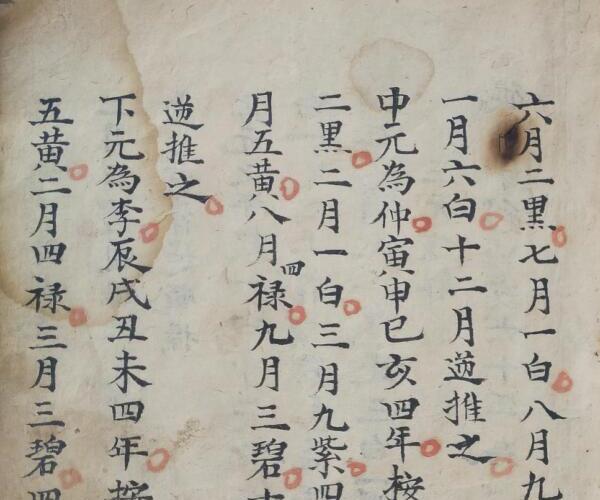 六月二黑七月一白八月九
一月六白十二月逆推之
中元為仲寅申巳亥四年按
二黑二月一白三月九紫四
月五黄八月四禄九月三碧十
逆推之
下元為李辰戌丑未四年按
五黄二月四禄三月三碧四